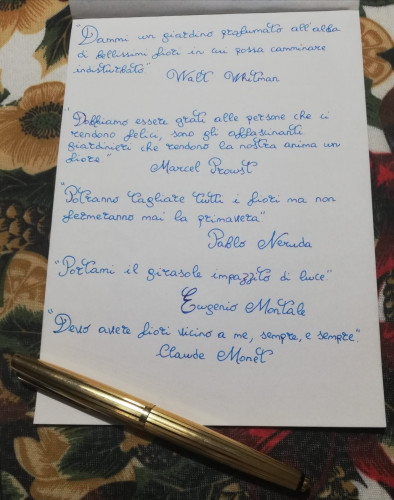 "Dammi un giardino profumato all'alba
di bellissimi fiori in cui possa camminare
indisturbato."
Walt Whitman
"Dobbiamo essere grati alle persone che ci
rendono felici, sono gli affascinanti
giardinieri che rendono la nostra anima un
fiore."
Marcel Proust
"Potranno tagliare tutti i fiori ma non
fermeranno mai la primavera".
Pablo Neruda
"Portami il girasole impazzito di luce."
Eugenio Montale
"Devo avere fiori vicino a me, sempre, e sempre".
Claude Monet